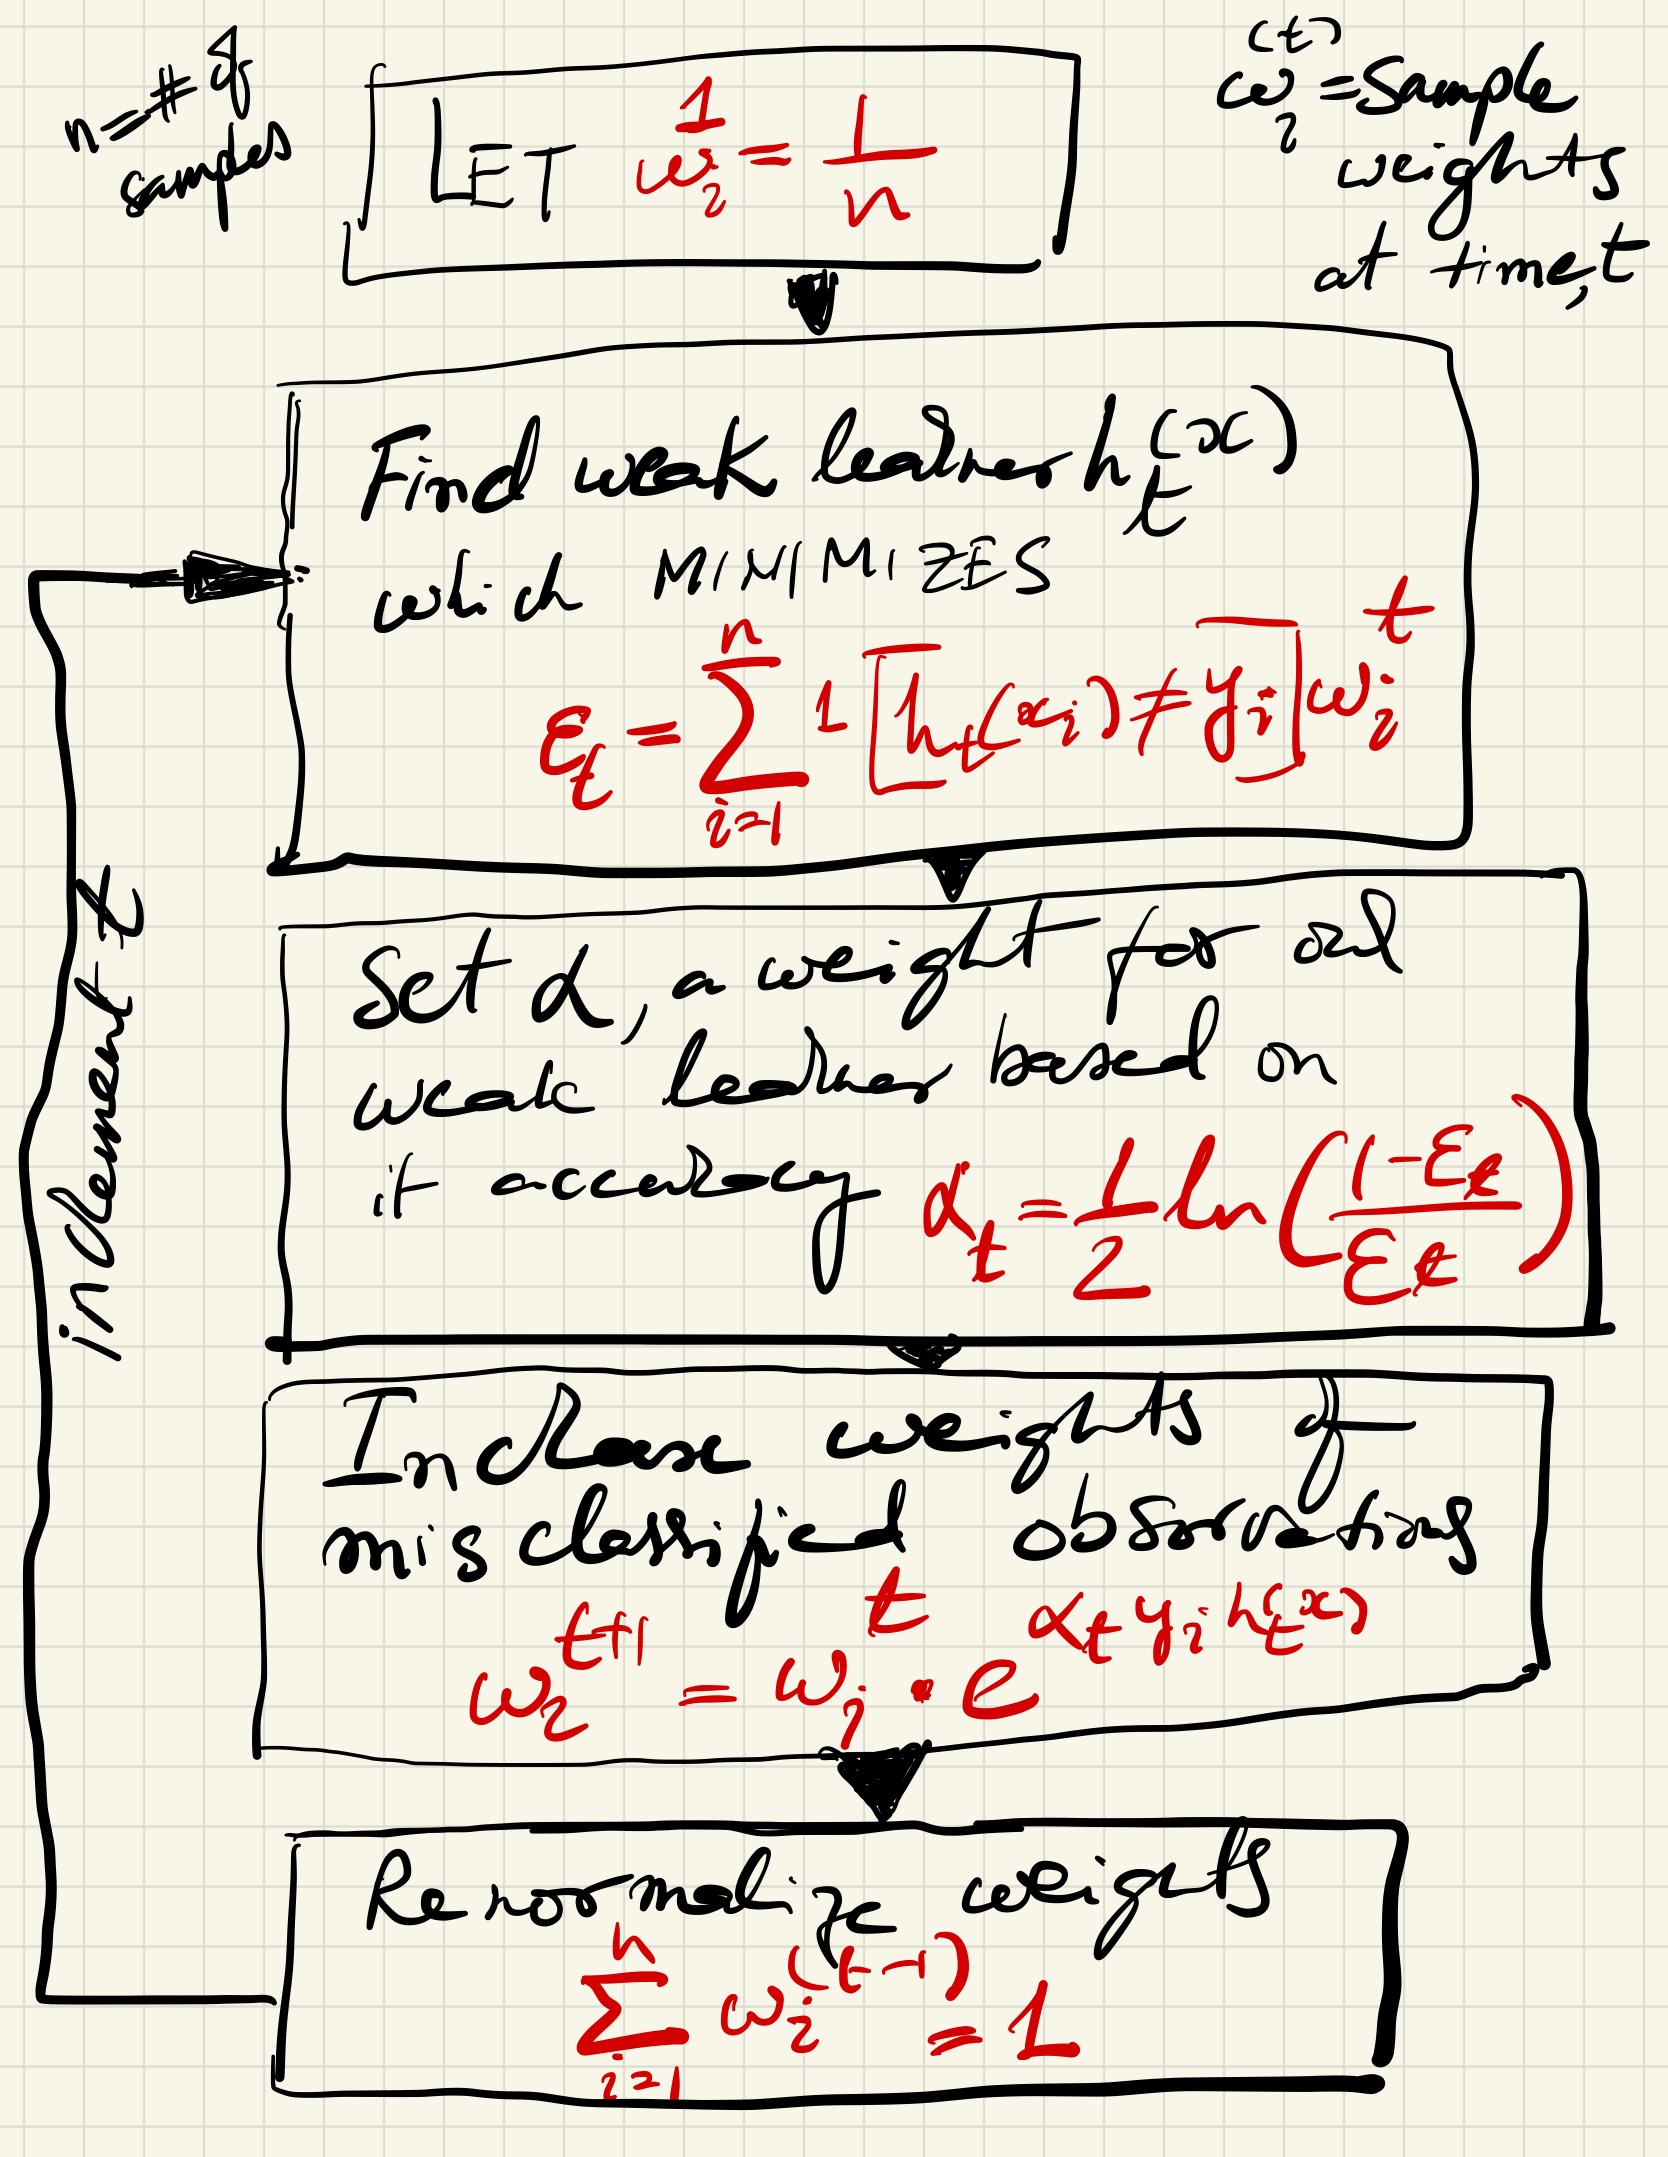 n = # of
samples
LET w_i^1 = 1/n
w_i^(t) = Sample
weights
at time, t
Find weak learner h_t(x)
which MINIMIZES
ε_t = Σ_{i=1}^{n} 1[h_t(x_i) ≠ y_i] w_i^t
Set α, a weight for our
weak learner based on
it accuracy α_t = 1/2 ln((1-ε_t)/ε_t)
Increase weights of
misclassified observations
w_i^{t+1} = w_i^t · e^{α_t y_i h_t(x)}
Renormalize weights
Σ_{i=1}^{n} w_i^(t-1) = 1
increment t